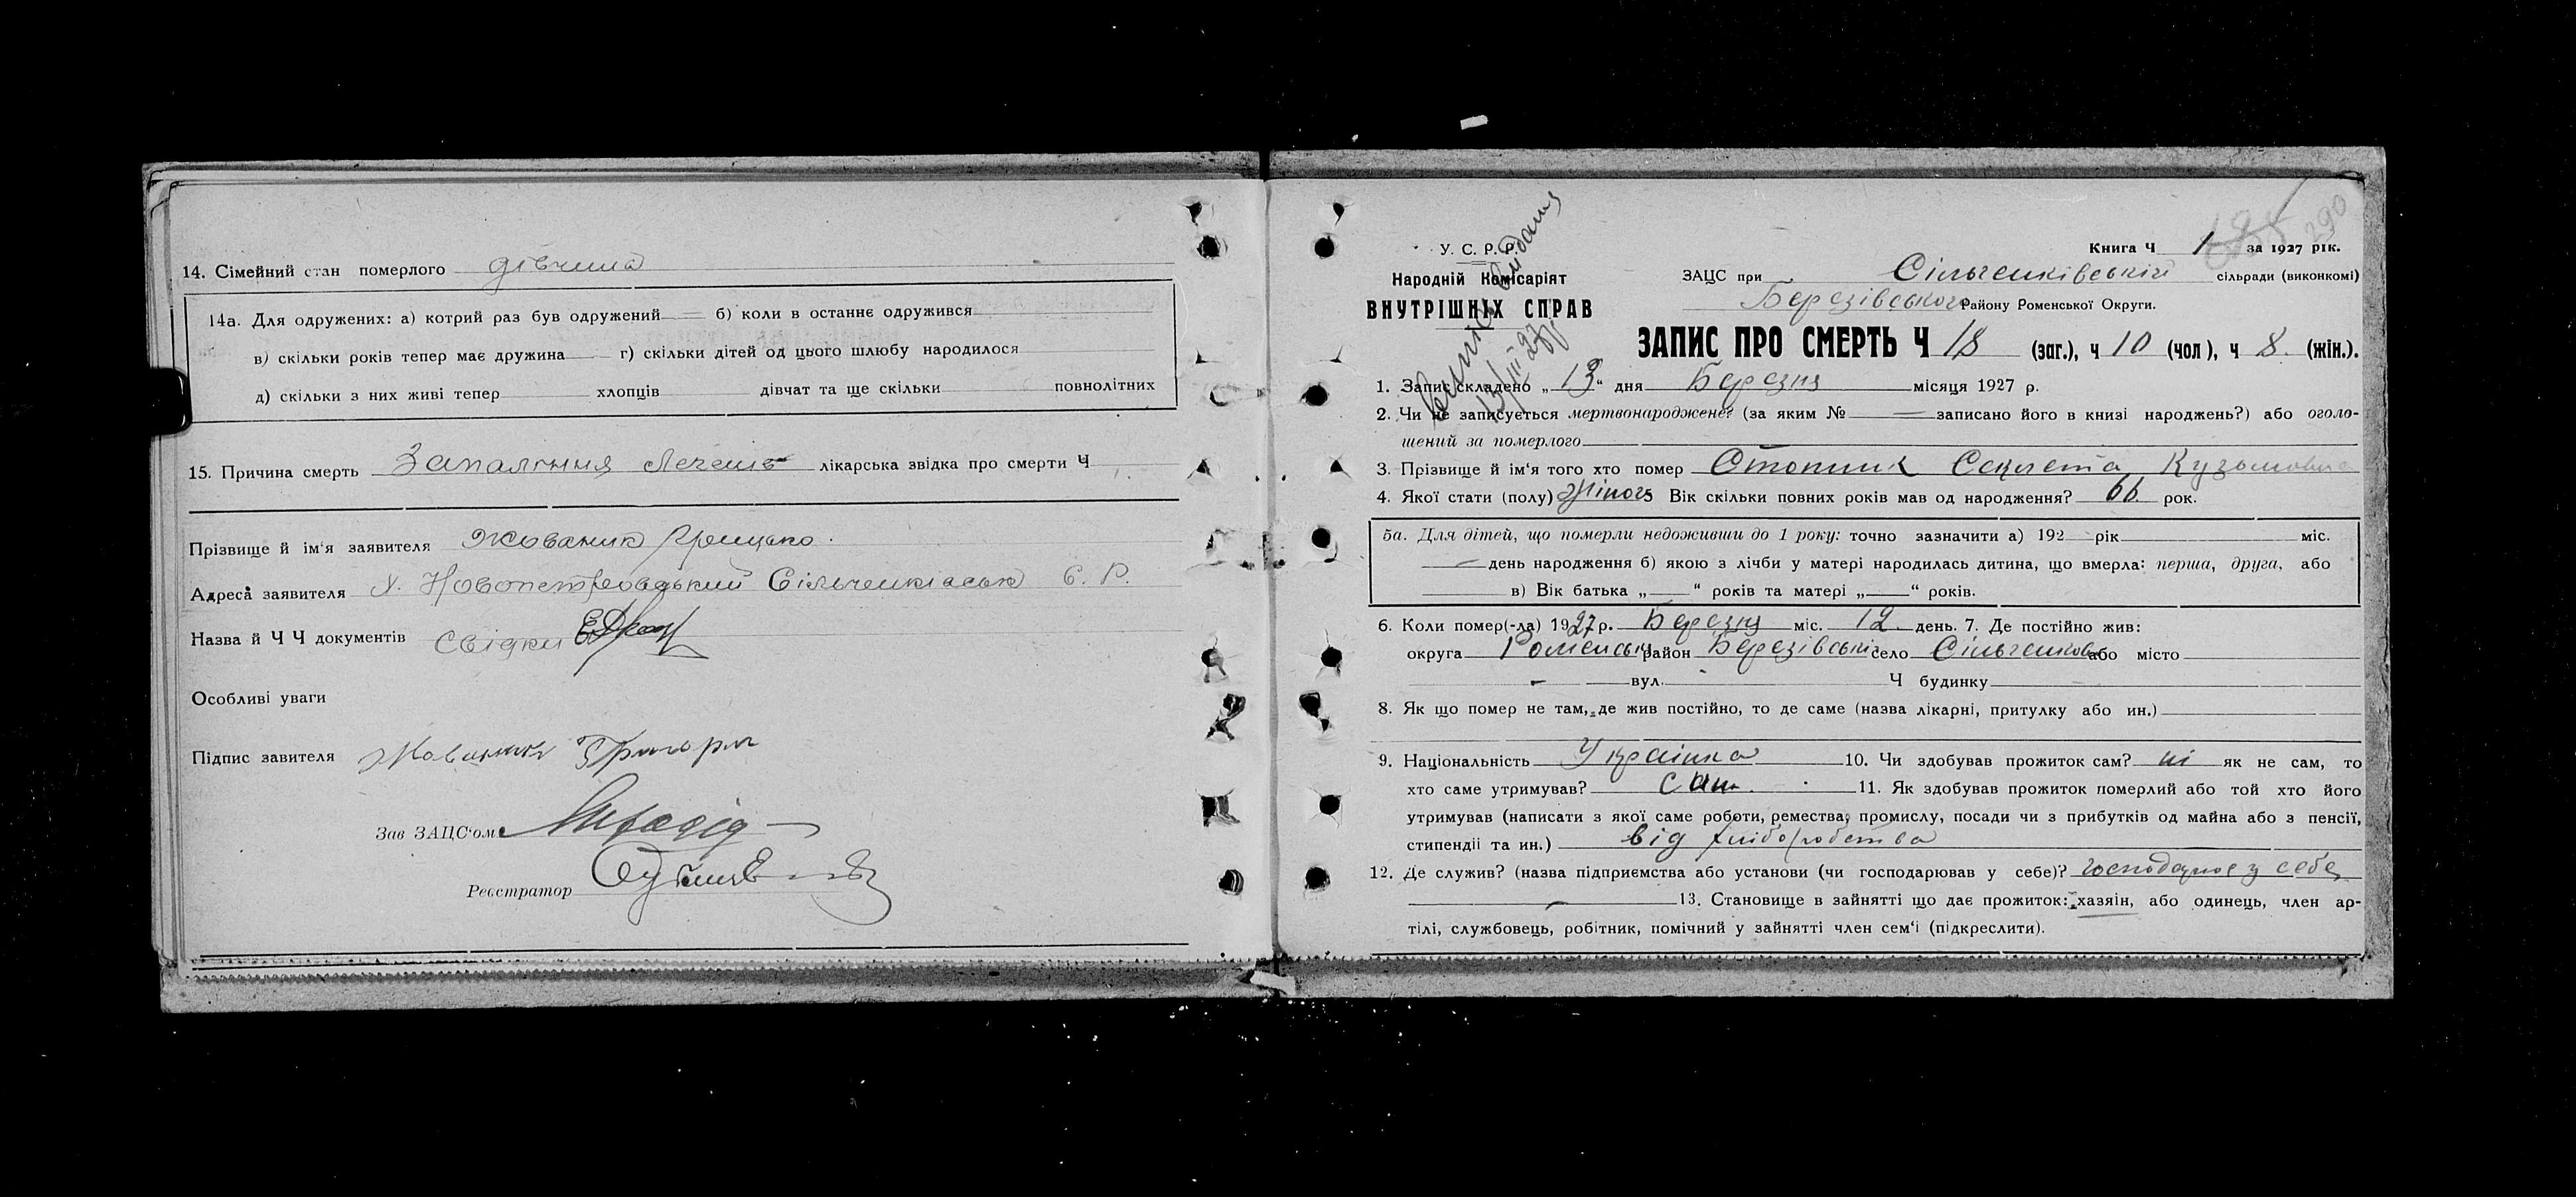 14. Сімейний стан померлого дівчина
14а. Для одружених: а) котрий раз був одружений — б) коли в останнє одружився
в) скільки років тепер має дружина — г) скільки дітей од цього шлюбу народилося
д) скільки з них живі тепер хлопців дівчат та ще скільки повнолітних
15. Причина смерть Запалення Легенів лікарська звідка про смерти Ч
Прізвище й ім'я заявителя Жованик Грицько.
Адреса заявителя х. Новопетровський Сільченківської С. Р.
Назва й Ч Ч документів Свідки
Особливі уваги
Підпис завителя Жованик Григорій
Зав ЗАЦС'ом
Реєстратор
290
У. С. Р. Р.
Народній Комісаріят
ВНУТРІШНІХ СПРАВ
видання
13/III 27р
Книга Ч 1 за 1927 рік.
ЗАЦС при Сільченківській сільради (виконкомі)
Березівського Району Роменської Округи.
ЗАПИС ПРО СМЕРТЬ Ч 18 (заг.), ч 10 (чол), ч 8. (жін.).
1. Запис складено „13“ дня Березня місяця 1927 р.
2. Чи не записується мертвонароджене? (за яким № — записано його в книзі народжень?) або оголо-
шений за померлого
3. Прізвище й ім'я того хто помер Стопник Секлета Кузьмовна
4. Якої стати (полу) Жіночо Вік скільки повних років мав од народження? 66 рок.
5а. Для дітей, що померли недоживши до 1 року: точно зазначити а) 192 рік міс.
— день народження б) якою з лічби у матері народилась дитина, що вмерла: перша, друга, або
в) Вік батька „—“ років та матері „—“ років.
6. Коли помер(-ла) 1927 р. Березня міс. 12 день. 7. Де постійно жив:
округа Роменськ район Березівський село Сільченково або місто
— вул. Ч будинку
8. Як що помер не там, де жив постійно, то де саме (назва лікарні, притулку або ин.)
9. Національність Українка 10. Чи здобував прожиток сам? ні як не сам, то
хто саме утримував? син. 11. Як здобував прожиток померлий або той хто його
утримував (написати з якої саме роботи, ремества, промислу, посади чи з прибутків од майна або з пенсії,
стипендії та ин.) від хліборобства
12. Де служив? (назва підприємства або установи (чи господарював у себе)? господарює у себе
13. Становище в зайнятті що дає прожиток: хазяін, або одинець, член ар-
тілі, службовець, робітник, помічний у зайнятті член сем'ї (підкреслити).